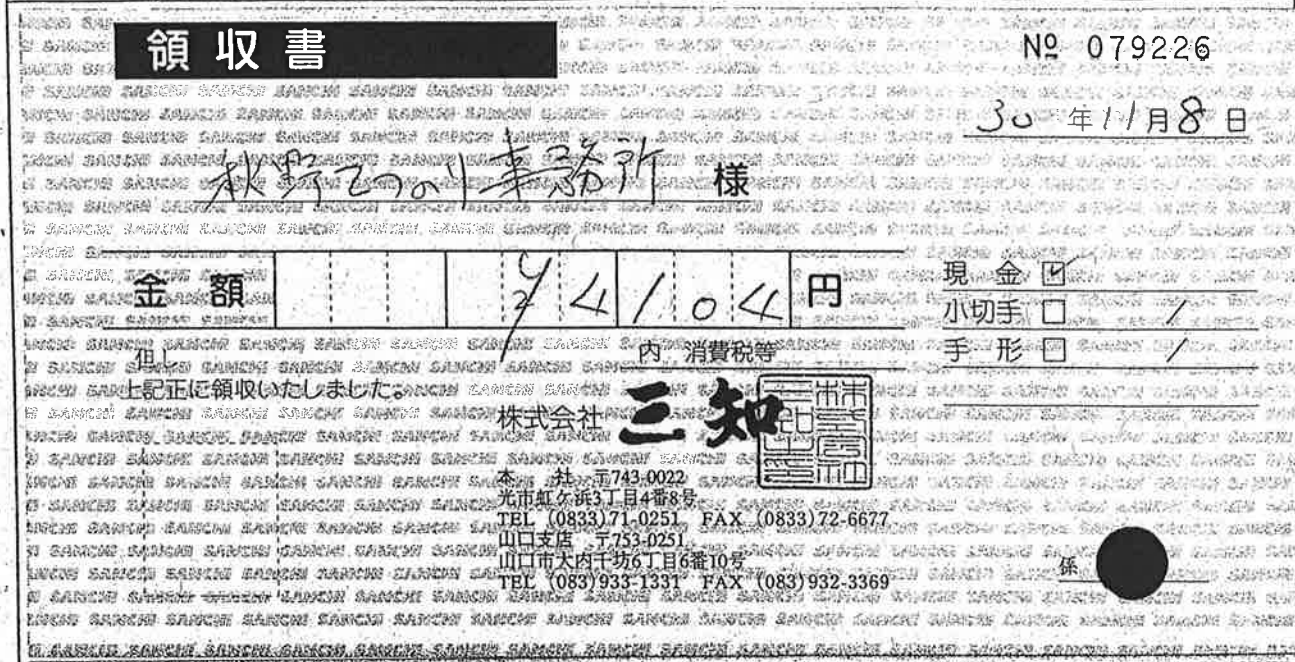 領収書
№ 079226
30年11月8日
秋野てつのり事務所 様
金額 ¥4104 円
現金 ☑
小切手 □ /
手形 □ /
但し
内 消費税等
上記正に領収いたしました。
株式会社 三知
本社 〒743-0022
光市虹ケ浜3丁目4番8号
TEL (0833)71-0251 FAX (0833)72-6677
山口支店 〒753-0251
山口市大内千坊6丁目6番10号
TEL (083)933-1331 FAX (083)932-3369
係